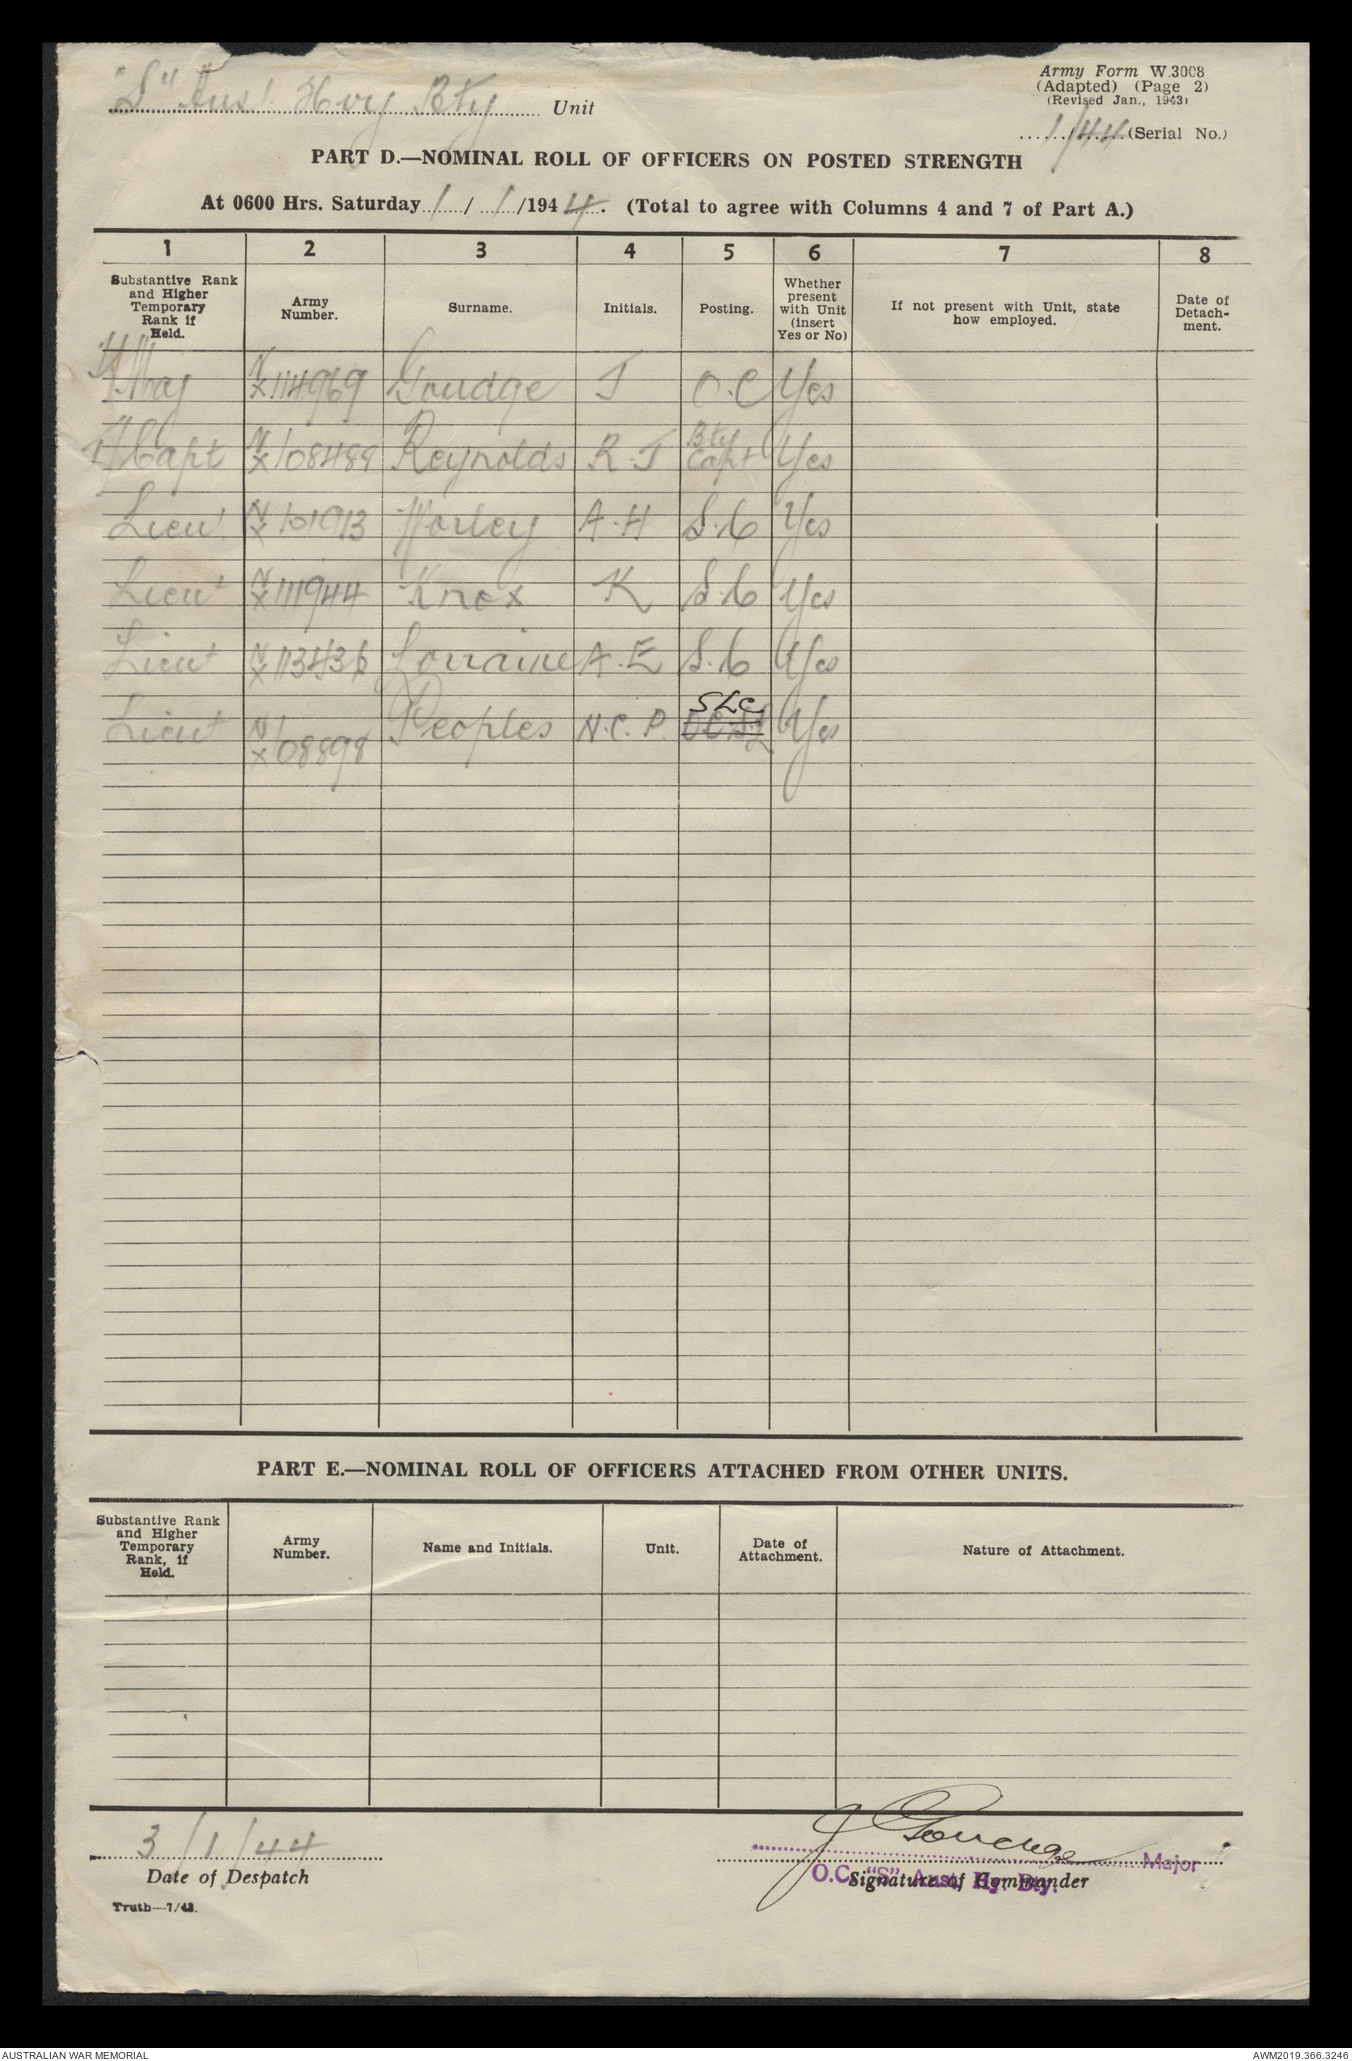 "S" Aust Hvy Bty Unit
Army Form W.3008
(Adapted) (Page 2)
(Revised Jan., 1943)
1/44 (Serial No.)
PART D.—NOMINAL ROLL OF OFFICERS ON POSTED STRENGTH
At 0600 Hrs. Saturday 1 / 1 /1944. (Total to agree with Columns 4 and 7 of Part A.)
1 2 3 4 5 6 7 8
Substantive Rank and Higher Temporary Rank if Held.
Army Number.
Surname.
Initials.
Posting.
Whether present with Unit (insert Yes or No)
If not present with Unit, state how employed.
Date of Detach-ment.
Maj NX114969 Goudge J O.C Yes
Capt NX108489 Reynolds R.J Bty Capt Yes
Lieut NX101913 Worley A.H S.C Yes
Lieut NX111944 Knox K S.C Yes
Lieut NX113436 Lorraine A.E S.C Yes
Lieut NX108898 Peoples N.C.P. SLC Yes
PART E.—NOMINAL ROLL OF OFFICERS ATTACHED FROM OTHER UNITS.
Substantive Rank and Higher Temporary Rank, if Held.
Army Number.
Name and Initials.
Unit.
Date of Attachment.
Nature of Attachment.
3/1/44
Date of Despatch
J Goudge
Major
O.C. "S" Aust. Hy. Bty.
Signature of Commander
Truth—7/43.
AUSTRALIAN WAR MEMORIAL
AWM2019.366.3246